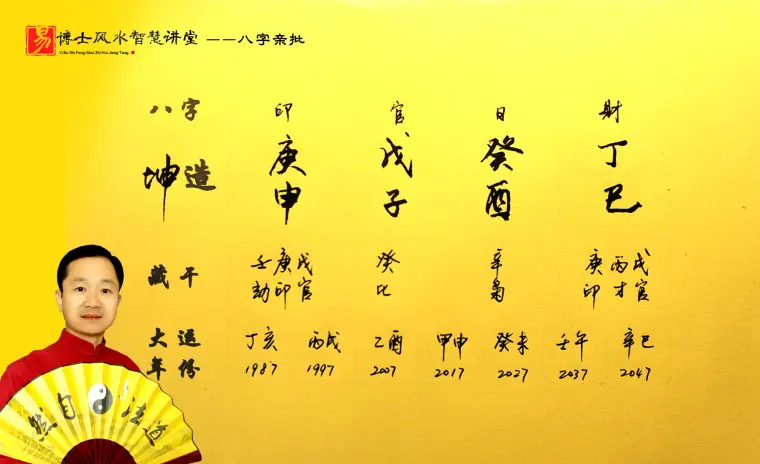 易 博士风水智慧讲堂 ——八字亲批
Yi Bo Shi Feng Shui Zhi Hui Jiang Tang
八字 印 官 日 財
坤造 庚申 戊子 癸酉 丁巳
藏干 壬庚戊 癸 辛 庚丙戊
劫印官 比 枭 印才官
大运 丁亥 丙戌 乙酉 甲申 癸未 壬午 辛巳
年份 1987 1997 2007 2017 2027 2037 2047
然自法道